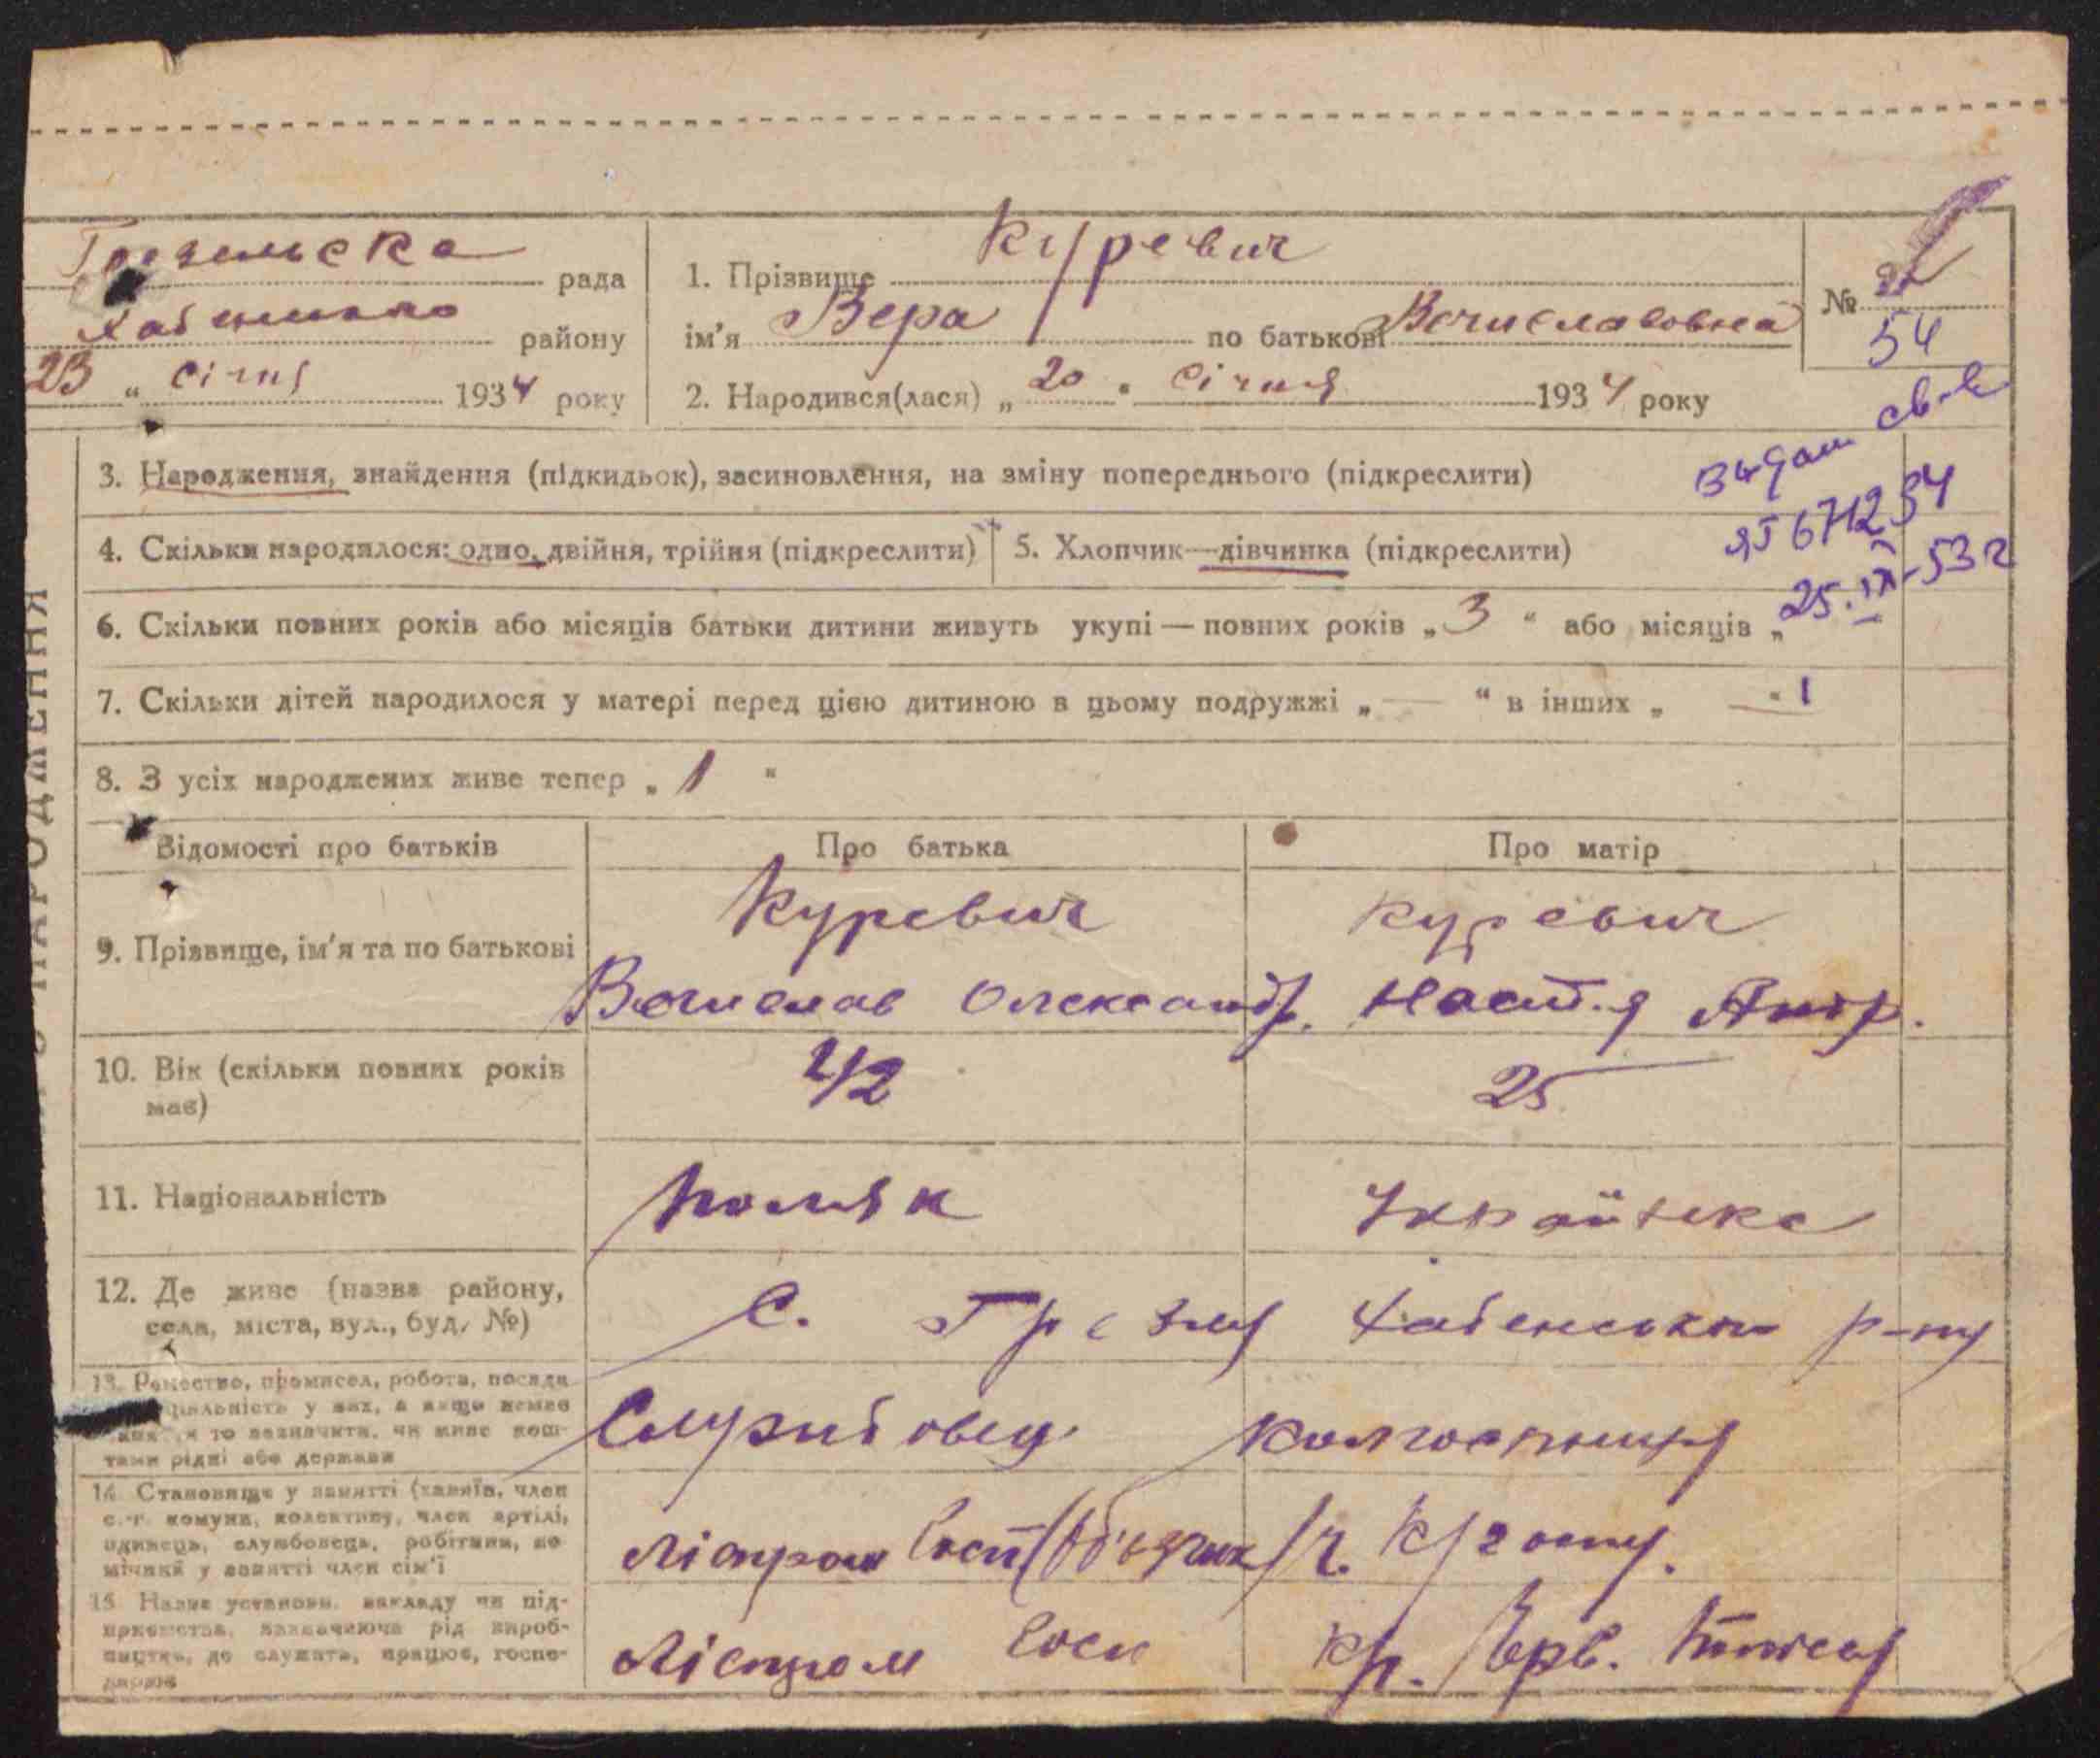 Грезельска рада
Хабенського району
23 " січня 1934 року
1. Прізвище Куревич
ім'я Вера по батькові Вячиславовна
2. Народився(лася) „ 20 " січня 1934 року
№ 54
Видан св-в
ЯТ 671234
25.IX-53 г
О НАРОДЖЕННЯ
3. Народження, знайдення (підкидьок), засиновлення, на зміну попереднього (підкреслити)
4. Скільки народилося: одно, двійня, трійня (підкреслити)
5. Хлопчик—дівчинка (підкреслити)
6. Скільки повних років або місяців батьки дитини живуть укупі — повних років „ 3 " або місяців „
7. Скільки дітей народилося у матері перед цією дитиною в цьому подружжі „ — " в інших „ — " 1
8. З усіх народжених живе тепер „ 1 "
Відомості про батьків
Про батька
Про матір
9. Прізвище, ім'я та по батькові
Куревич
Вячислав Олександр.
Куревич
Настя Андр.
10. Вік (скільки повних років має)
42
25
11. Національність
Поляк
Українка
12. Де живе (назва району,
села, міста, вул., буд. №)
С. Грезля Хабенського р-ну
13. Ремество, промисел, робота, посада
ціальність у них, а якщо немає
то зазначити, чи живе кош-
тами рідні або держави
Службовец
Колгоспниця
14. Становище у занятті (хазяїн, член
с.-г. комуни, колективу, член артілі,
одинець, службовець, робітник, по-
мічний у занятті член сім'ї
Ліспром Госп (Об'їздчик)
Ч. К/госпу.
15. Назва установи, закладу чи під-
приємства, зазначаючи рід вироб-
ництва, де служить, працює, госпо-
дарює
Ліспром Госп
К/г. Черв.